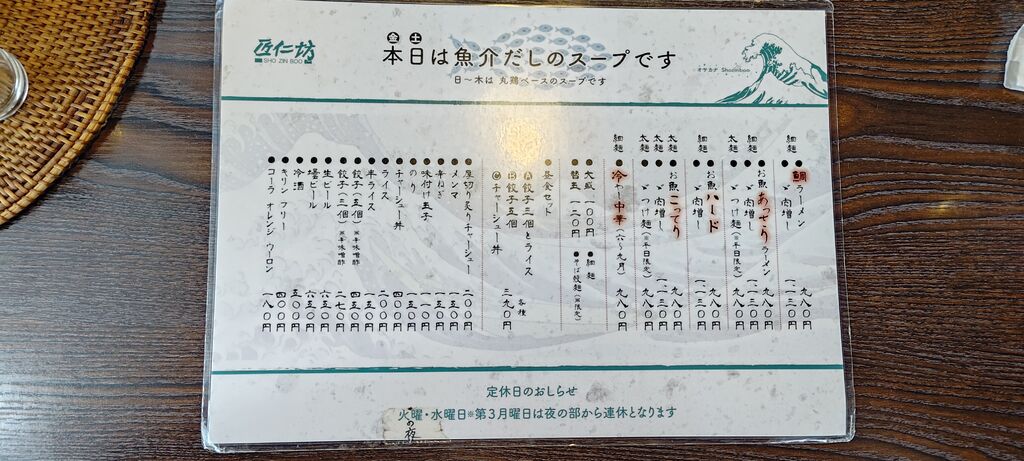 匠仁坊
SHO ZIN BOO
金 土
本日は魚介だしのスープです
日〜木は 丸鶏ベースのスープです
細麺
● 鯛ラーメン 九八〇円
〃 肉増し 一一三〇円
細麺
● お魚あっさりラーメン 九八〇円
〃 肉増し 一一三〇円
太麺
● 〃 つけ麺(※平日限定) 九八〇円
細麺
● お魚ハード 九八〇円
〃 肉増し 一一三〇円
太麺
● お魚こってり 九八〇円
太麺
● 〃 肉増し 一一三〇円
太麺
● 〃 つけ麺(※平日限定) 九八〇円
細麺
● 冷やし中華(六〜九月) 九八〇円
● 大盛 一〇〇円
● 替玉 一二〇円
● 細麺
● そば餃麺(※限定)
● 昼食セット
Ⓐ 餃子三個とライス
Ⓑ 餃子五個
Ⓒ チャーシュー丼
各種
三九〇円
● 厚切り炙りチャーシュー 二〇〇円
● メンマ 一五〇円
● 辛ねぎ 一五〇円
● 味付け玉子 一一〇円
● のり 一〇〇円
● チャーシュー丼 四〇〇円
● ライス 二〇〇円
● 半ライス 一五〇円
● 餃子(五個)※辛味噌酢 四五〇円
● 餃子(三個)※辛味噌酢 二七〇円
● 生ビール 六五〇円
● 瓶ビール 六五〇円
● 冷酒 五〇〇円
● キリン フリー 四〇〇円
● コーラ オレンジ ウーロン 一八〇円
定休日のおしらせ
火曜・水曜日※第3月曜日は夜の部から連休となります
の夜